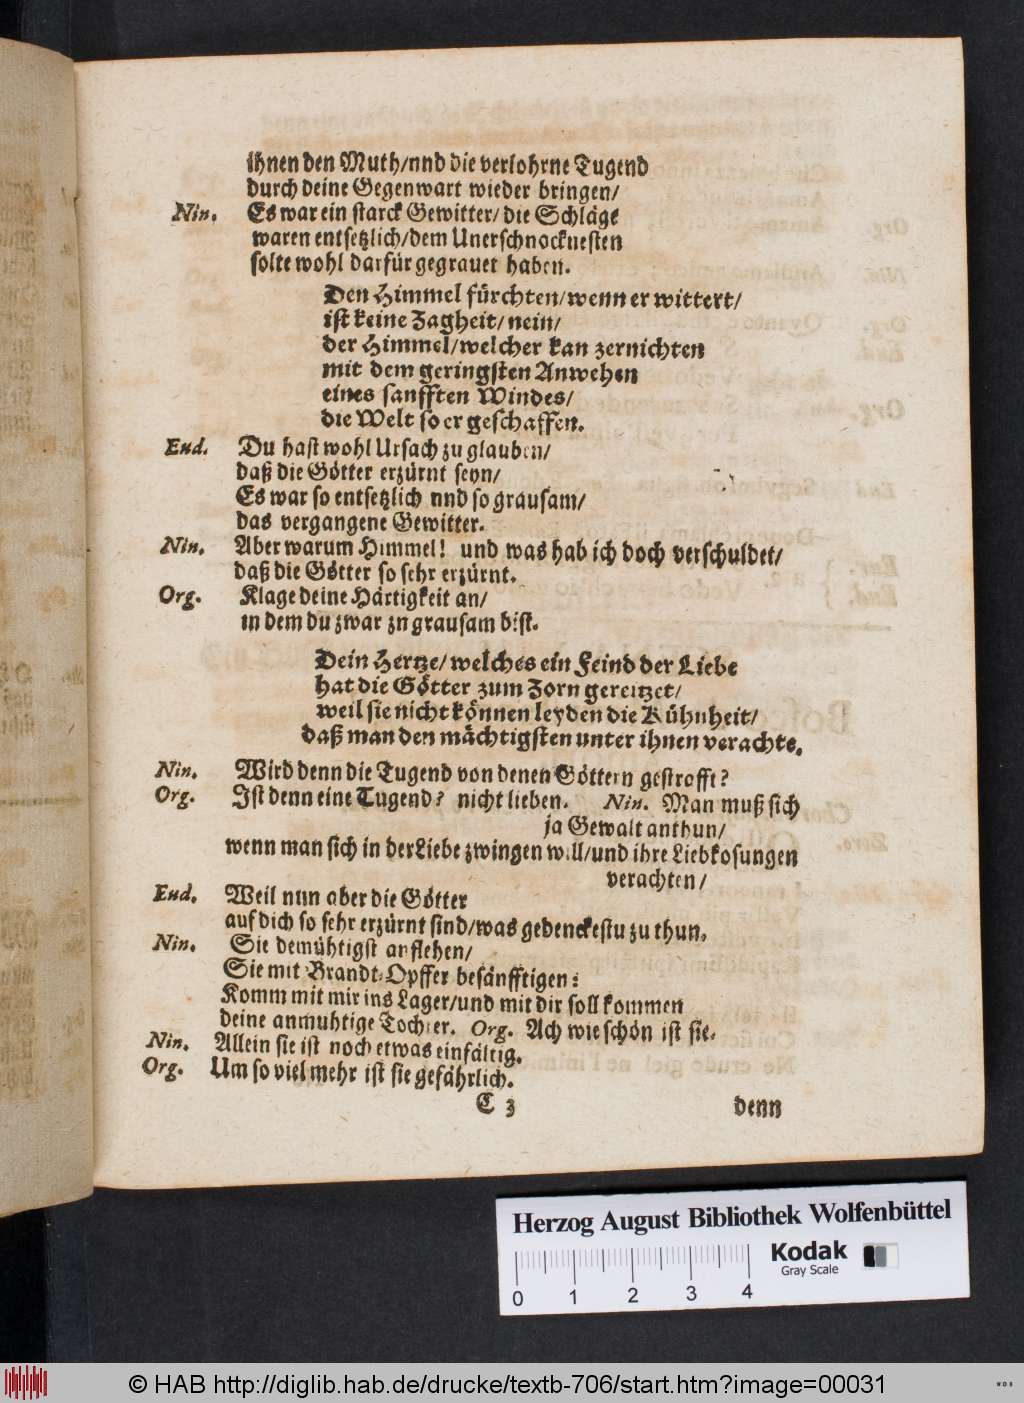 ihnen den Muth/nnd die verlohrne Tugend
durch deine Gegenwart wieder bringen/
Nin. Es war ein starck Gewitter/ die Schläge
waren entsetzlich/dem Unerschnocknesten
solte wohl darfür gegrauet haben.
Den Himmel fürchten/wenn er wittert/
ist keine Zagheit/nein/
der Himmel/welcher kan zernichten
mit dem geringsten Anwehen
eines sanfften Windes/
die Welt so er geschaffen.
End. Du hast wohl Ursach zu glauben/
daß die Götter erzürnt seyn/
Es war so entsetzlich nnd so grausam/
das vergangene Gewitter.
Nin. Aber warum Himmel! und was hab ich doch verschuldet/
daß die Götter so sehr erzürnt.
Org. Klage deine Härtigkeit an/
in dem du zwar zn grausam bist.
Dein Hertze/welches ein Feind der Liebe
hat die Götter zum Zorn gereitzet/
weil sie nicht können leyden die Kühnheit/
daß man den mächtigsten unter ihnen verachte.
Nin. Wird denn die Tugend von denen Göttern gestrofft?
Org. Ist denn eine Tugend? nicht lieben. Nin. Man muß sich
ja Gewalt anthun/
wenn man sich in der Liebe zwingen will/und ihre Liebkosungen
verachten/
End. Weil nun aber die Götter
auf dich so sehr erzürnt sind/was gedenckestu zu thun.
Nin. Sie demühtigst anflehen/
Sie mit Brandt-Opffer besänfftigen:
Komm mit mir ins Lager/und mit dir soll kommen
deine anmuhtige Tochter. Org. Ach wie schön ist sie.
Nin. Allein sie ist noch etwas einfältig.
Org. Um so viel mehr ist sie gefährlich.
C 3 denn
Herzog August Bibliothek Wolfenbüttel
Kodak
Gray Scale
0 1 2 3 4
© HAB http://diglib.hab.de/drucke/textb-706/start.htm?image=00031